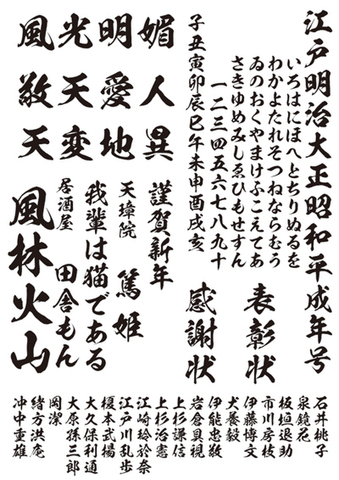 江戸明治大正昭和平成年号
いろはにほへとちりぬるを
わかよたれそつねならむう
ゐのおくやまけふこえてあ
さきゆめみしゑひもせすん
一二三四五六七八九十
子丑寅卯辰巳午未申酉戌亥
表彰状
感謝状
風光明媚
敬天愛人
天変地異
謹賀新年
天璋院 篤姫
我輩は猫である
居酒屋 田舎もん
風林火山
石井桃子
泉鏡花
板垣退助
市川房枝
伊藤博文
犬養毅
伊能忠敬
岩倉具視
上杉謙信
上杉治憲
江崎玲於奈
江戸川乱歩
榎本武揚
大久保利通
大原孫三郎
岡潔
緒方洪庵
冲中重雄